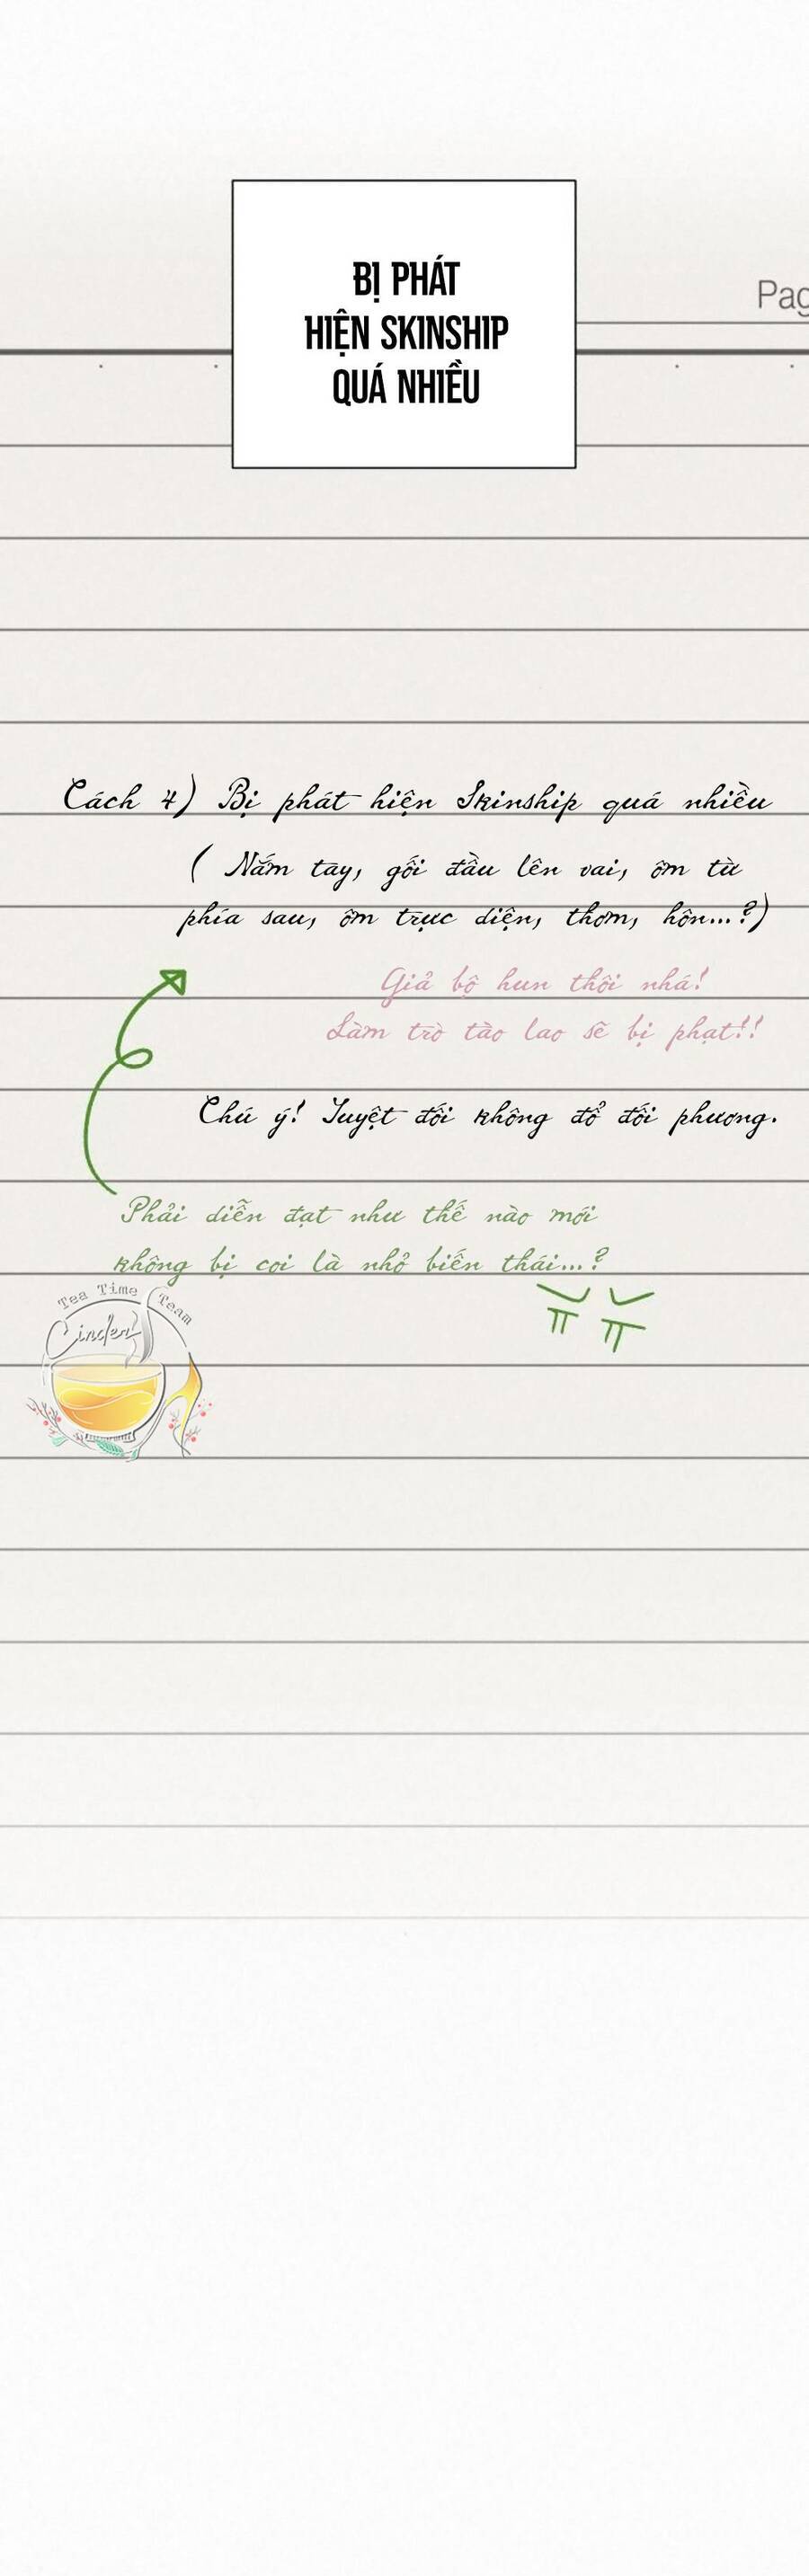 BỊ PHÁT
HIỆN SKINSHIP
QUÁ NHIỀU
Pag
Cách 4) Bị phát hiện Skinship quá nhiều
( Nắm tay, gối đầu lên vai, ôm từ
phía sau, ôm trực diện, thơm, hôn...?)
Giả bộ hun thôi nhá!
Làm trò tào lao sẽ bị phạt!!
Chú ý! Tuyệt đối không đổ đối phương.
Phải diễn đạt như thế nào mới
không bị coi là nhỏ biến thái...?
ㅠㅠ
Tea Time Team
Cinder